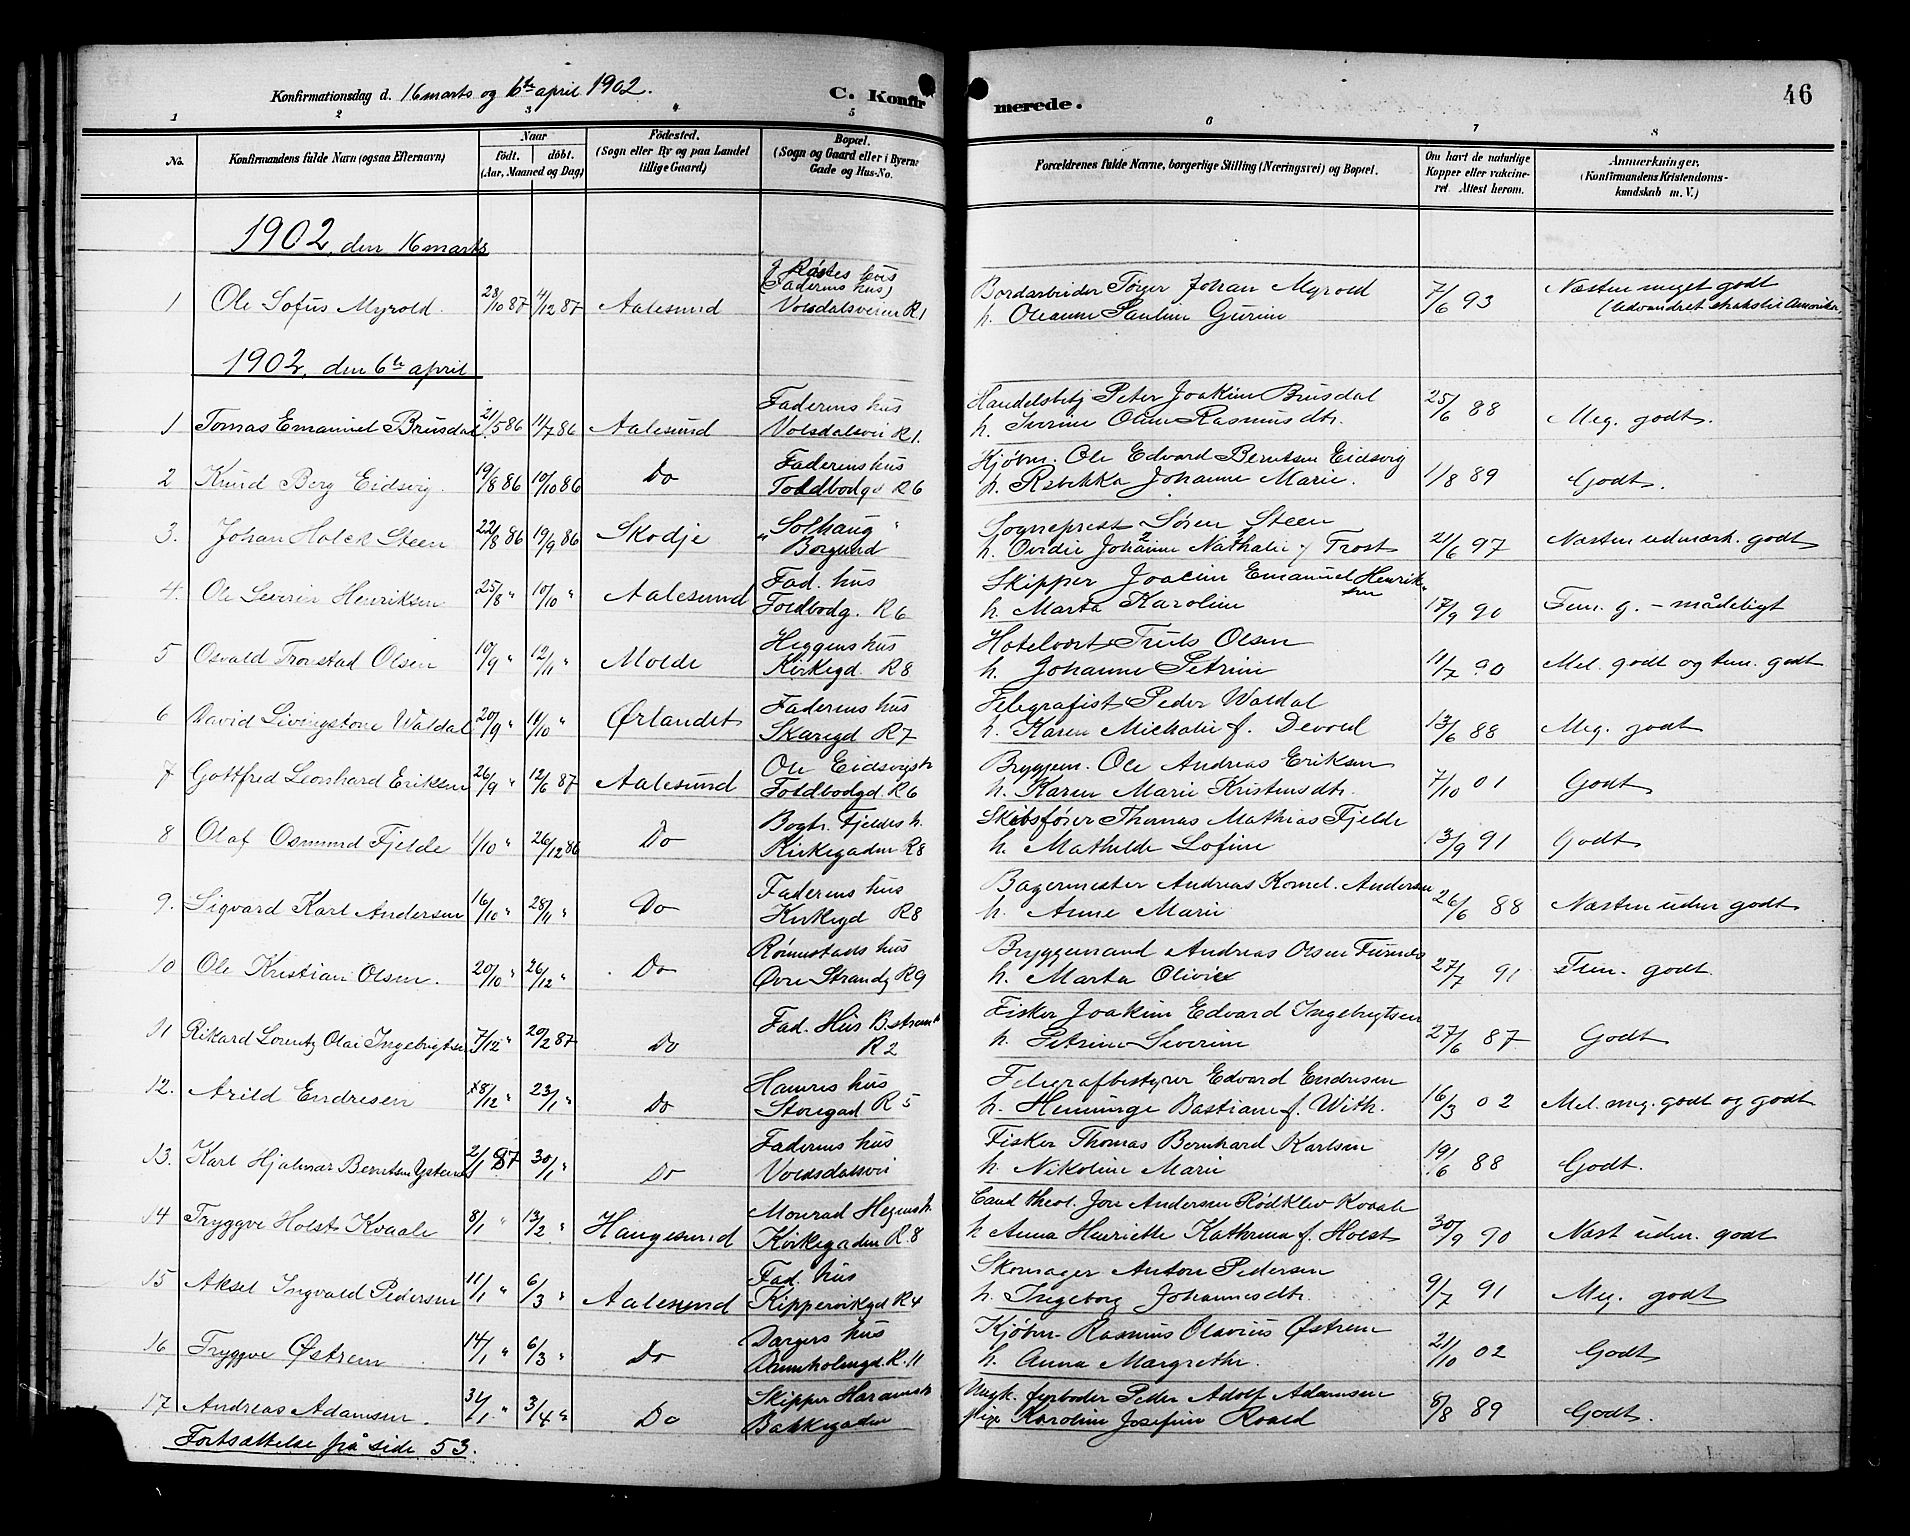 Konfirmationsdag d. 16 marts og 6te april 1902.
C. Konfirmerede.
46
1 2 3 4 5 6 7 8
No.
Konfirmandens fulde Navn (ogsaa Efternavn)
Naar
födt. döbt.
(Aar, Maaned og Dag)
Födested.
(Sogn eller By og paa Landet
tillige Gaard)
Bopæl.
(Sogn og Gaard eller i Byerne
Gade og Hus-No.
Forældrenes fulde Navne, borgerlige Stilling (Næringsvei) og Bopæl.
Om havt de naturlige
Kopper eller vakcine-
ret. Attest herom.
Anmærkninger,
(Konfirmandens Kristendoms-
kundskab m. V.)
1902, den 16 marts
1 Ole Sofus Myrvold. 28/10 87 4/12 87 Aalesund
(Faderens hus)
Volsdalsveien R1
Bordarbeider Johan Myrold
h. Oleanne Pauline Gurine
7/6 93
Næsten meget godt
(Udvandret straks til Amerika)
1902, den 6te april
1 Tomas Emanuel Brusdal 21/5 86 11/7 86 Aalesund
Faderens hus
Volsdalsvei R1.
Handelsbetj Peter Joakim Brusdal
h. Severine Oline Rasmusdtr.
25/6 88 Meg. godt.
2 Knud Berg Eidsvig. 19/8 86 10/10 86 Do
Faderens hus
Toldbodgd R6
Kjøbm. Ole Edvard Berntsen Eidsvig
h. Rebekka Johanne Marie.
1/8 89 Godt.
3. Johan Holck Steen 22/8 86 19/9 86 Skodje
"Solhaug"
Borgund
Sogneprest Søren Steen
h. Ovidie Johanne Nathalie f. Trost
21/6 97 Næsten udmærk. godt
4. Ole Severin Henriksen 25/8 " 10/10 " Aalesund
Fad. hus
Toldbodg. R6
Skipper Joacim Emanuel Henriksen
h. Marta Karoline
17/9 90 Tem. g. - mådeligt
5 Osvald Tronstad Olsen 10/9 " 12/11 " Molde
Heggens hus
Kirkegd. R8
Hotelvert Truls Olsen
h. Johanne Petrine
11/7 90 Mel. godt og tem. godt
6 David Livingstone Waldal 20/9 " 11/10 " Ørlandet
Faderens hus
Skaregd R7
Telegrafist Peder Waldal
h. Karen Michalie f. Devold
13/6 88 Meg. godt
7 Gottfred Leonhard Eriksen 26/9 " 12/6 87 Aalesund
Ole Eidsvigs h
Toldbodgd. R6
Bryggem. Ole Andreas Eriksen
h. Karen Marie Kristensdtr.
7/10 01 Godt
8 Olaf Osmund Fjelde 1/10 " 26/12 86 Do
Bogtr. Fjeldes h.
Kirkegaden R8
Skibsfører Thomas Mathias Fjelde
h. Mathilde Lofine
13/9 91 Godt
9. Sigvard Karl Andersen 16/10 " 28/11 " Do
Faderens hus
Kirkegd R8
Bagermester Andreas Kornel. Andersen
h. Anne Marie
26/6 88 Næsten udm godt
10 Ole Kristian Olsen. 20/10 " 26/12 " Do
Rønnestads hus
Øvre Strandg R9
Bryggemand Andreas Olsen Furnes
h. Marta Olivie
27/7 91 Tem. godt.
11 Rikard Lorentz Olai Ingebrigtsen 7/12 " 20/2 87 Do
Fad. Hus
R2
Fisker Joakim Edvard Ingebrigtsen
h. Petrine Severine
27/6 87 Godt
12. Arild Endresen 8/12 " 23/1 " Do
Hamres hus
Storegad R5
Telegrafbestyrer Edvard Endresen
h. Henninge Bastiane f. With.
16/3 02 Mel. meg. godt og godt
13. Karl Hjalmar Berntsen 2/1 87 30/1 " Do
Faderens hus
Voldsdalsvei
Fisker Thomas Bernhard Karlsen
h. Nikoline Marie
19/6 88 Godt.
14 Tryggve Holst Kvaale 8/1 " 13/2 " Haugesund
Monrad Hegens h.
Kirkegaden R.8
Cand theol. Jon Andersen Rødklev Kvaale
h Anna Henriette Kathrina f. Holst
30/9 90 Næst udm. godt
15 Aksel Ingvald Pedersen 11/1 " 6/3 " Aalesund
Fad. hus
Kippervikgd R4
Skomager Anton Pedersen
h. Ingeborg Johannesdtr.
9/7 91 Meg. godt
16 Tryggve Østrem 14/1 " 6/3 " Do
hus
R.11
Kjøbm. Rasmus Olavius Østrem
h. Anna Margrethe.
21/10 02 Godt
17 Andreas Adamsen. 31/1 " 3/4 " Do
Skipper
Bakkegaden
Ungk. fyrbøder Peder Adolf Adamsen
pige Karoline Josefine Roald
8/8 89 Godt.
Fortsættelse på side 53.